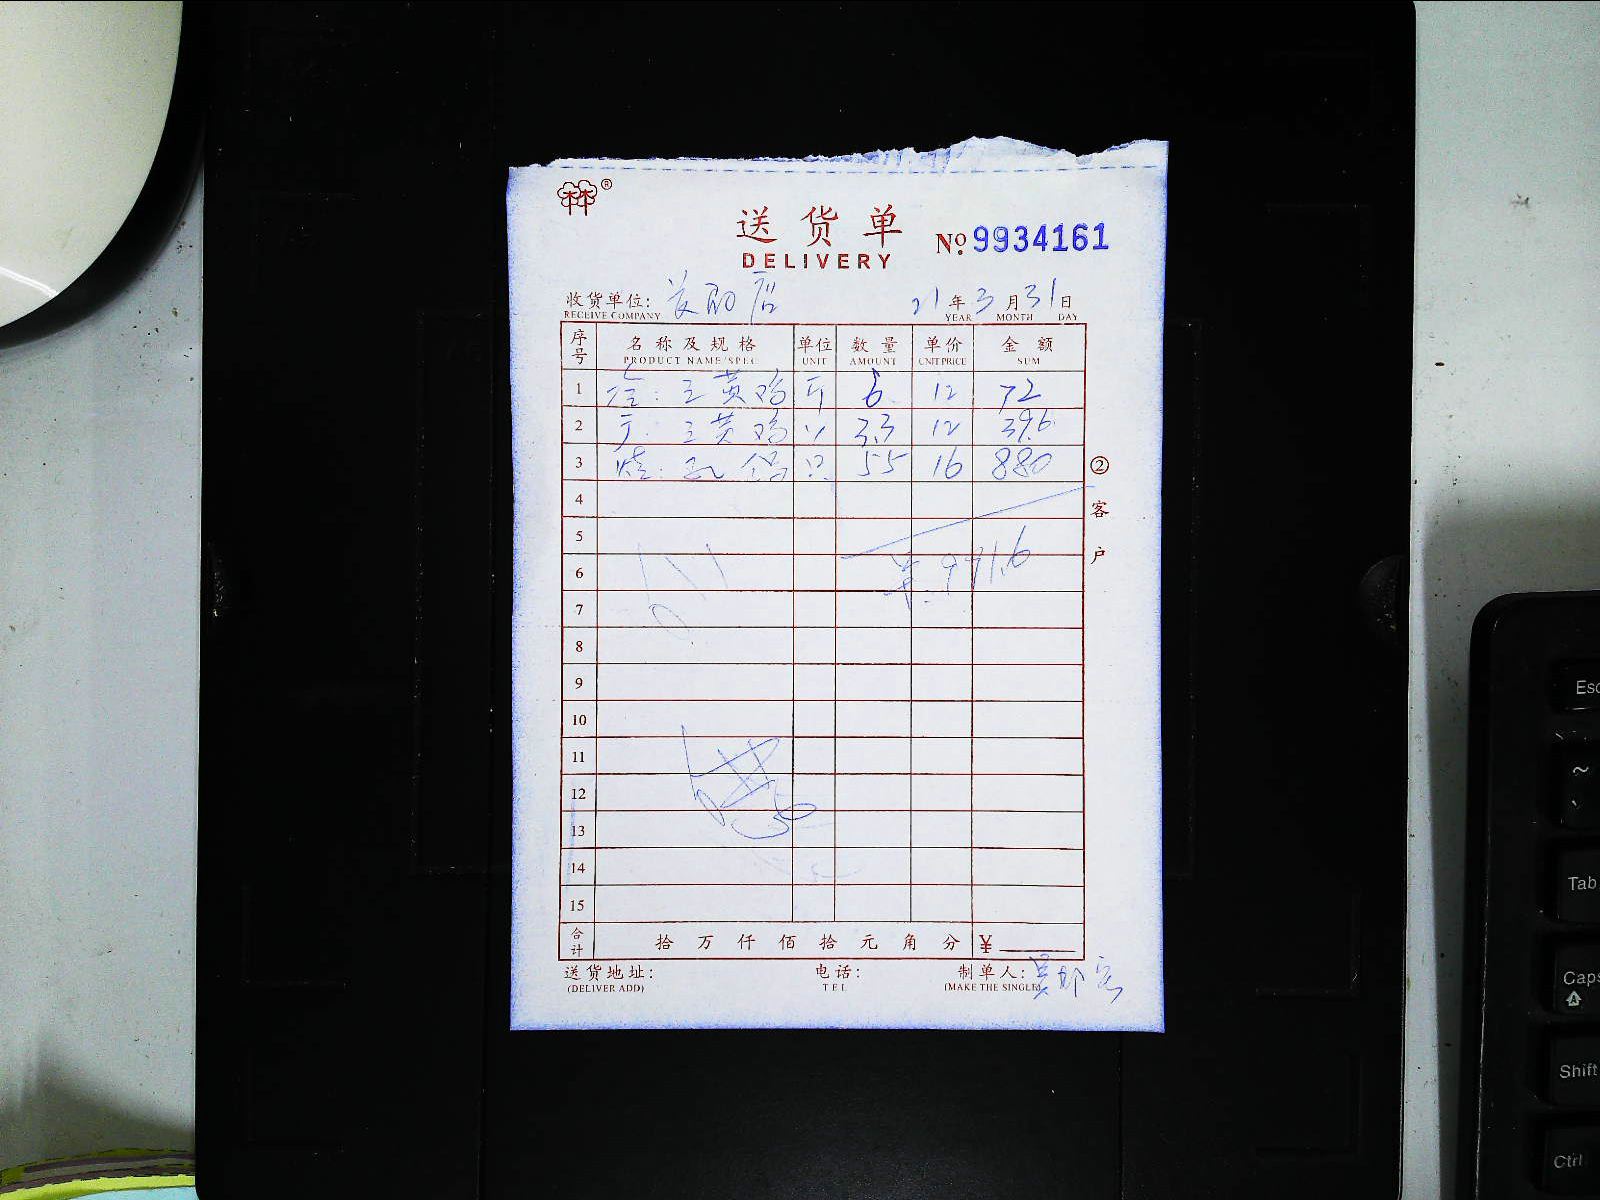 林®
送货单
No. 9934161
DELIVERY
收货单位: 店 21年3月31日
RECEIVE COMPANY YEAR MONTH DAY
序号 名称及规格 单位 数量 单价 金额
PRODUCT NAME/SPEC UNIT AMOUNT UNITPRICE SUM
1 三黄鸡 斤 6 12 72
2 三黄鸡 〃 3.3 12 39.6
3 烧: 乳鸽 只 55 16 880
4
5
6 ¥991.6
7
8
9
10
11
12
13
14
15
②客户
合计 拾万仟佰拾元角分 ¥
送货地址: 电话: 制单人: 吴
(DELIVER ADD) TEL (MAKE THE SINGLE)
Esc
~
Tab
Caps
Shift
Ctrl